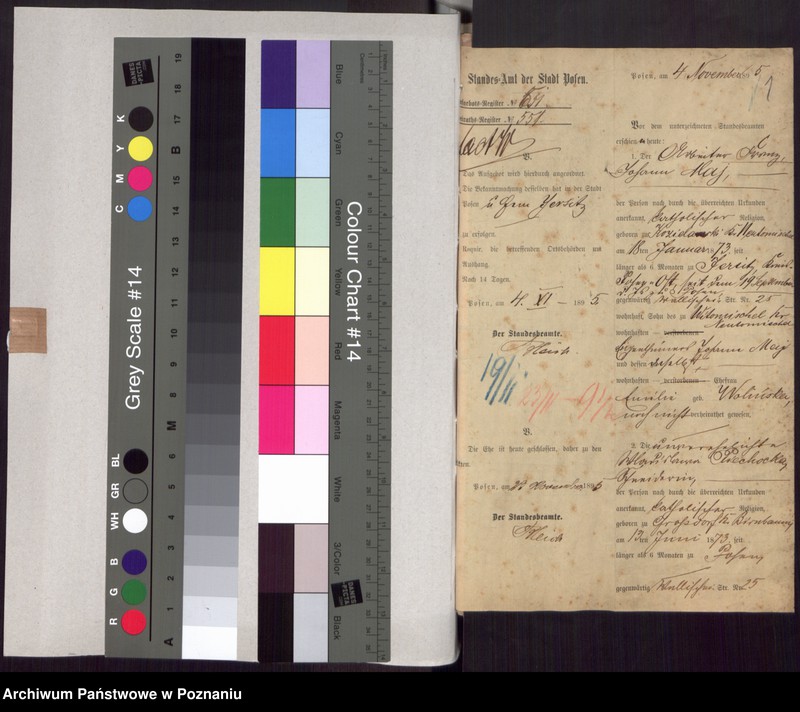 Grey Scale #14
Colour Chart #14
DANES
PICTA
R G B WH GR BL C M Y K
A 1 2 3 4 5 6 M 8 9 10 11 12 13 14 15 B 17 18 19
Blue
Cyan
Green
Yellow
Red
Magenta
White
3/Color
Black
Standes-Amt der Stadt Posen.
Aufgebots-Register No 651.
Heiraths-Register No 551.
V.
Das Aufgebot wird hierdurch angeordnet.
Die Bekanntmachung desselben hat in der Stadt
Posen u. Gem Jersitz
zu erfolgen.
Kopie, die betreffenden Ortsbehörden um
Aushang.
Nach 14 Tagen.
Posen, am 4. XI 1895
Der Standesbeamte.
19/11
V.
Die Ehe ist heute geschlossen, daher zu den
Akten.
Posen, am November 1895
Der Standesbeamte.
Posen, am 4. November 1895
Vor dem unterzeichneten Standesbeamten
erschienen heute:
1. Der Arbeiter Franz,
Johann Maj,
der Person nach durch die überreichten Urkunden
anerkannt, katholischer Religion,
geboren zu Kr. Neutomischel
am 18ten Januar 1873, seit
länger als 6 Monaten zu Jersitz, Kreis
Posen-Ost, seit dem 19. September
gegenwärtig Wallischei Str. Nr. 25
wohnhaft, Sohn des zu Witomischel Kr.
Neutomischel
wohnhaften — verstorbenen
Eigenthümers Johann Maj
und dessen daselbst
wohnhaften — verstorbenen Ehefrau
Emilie geb. Wolinska,
noch nicht verheirathet gewesen,
2. Die unverehelichte
Wladislawa Piechocka,
Schneiderin,
der Person nach durch die überreichten Urkunden
anerkannt, katholischer Religion,
geboren zu Großdorf Kr. Birnbaum,
am 12ten Juni 1873, seit
länger als 6 Monaten zu Posen,
gegenwärtig Wallischei Str. Nr. 25
Archiwum Państwowe w Poznaniu